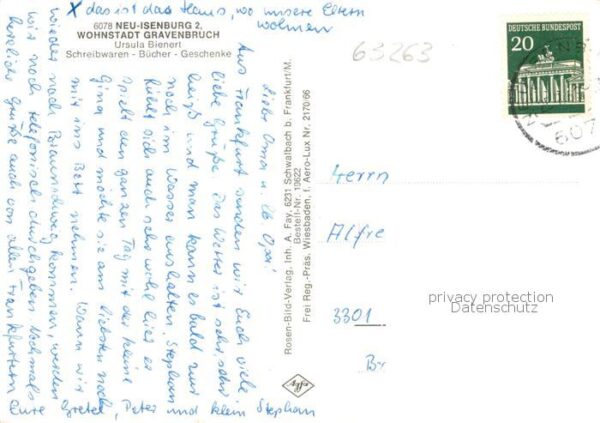 x das ist das Haus, wo unsere Eltern
wohnen
6078 NEU-ISENBURG 2,
WOHNSTADT GRAVENBRUCH
Ursula Bienert
Schreibwaren - Bücher - Geschenke
63263
20
DEUTSCHE BUNDESPOST
607
Liebe Oma u. lb Opa!
Aus Frankfurt senden wir Euch viele
liebe Grüße. Das Wetter ist sehr, sehr
heiß und man kann es bald nur
noch im Wasser aushalten. Stephan
fühlt sich auch sehr wohl hier er
spielt den ganzen Tag mit der kleine
Gina und möchte sie am liebsten noch
mit ins Bett nehmen. Wann wir
wieder nach Braunschweig kommen, werden
wir noch telefonisch durchgeben. Nochmals
herzliche Grüße auch von allen Frankfurtern
Eure Gretel, Peter und klein Stephan
Rosen-Bild-Verlag, Inh. A. Fay, 6231 Schwalbach b. Frankfurt/M.
Bestell-Nr. 19622
Frei Reg.-Präs. Wiesbaden, f. Aero-Lux Nr. 2170/66
Agfa
Herrn
Alfre
3301
Br
privacy protection
Datenschutz